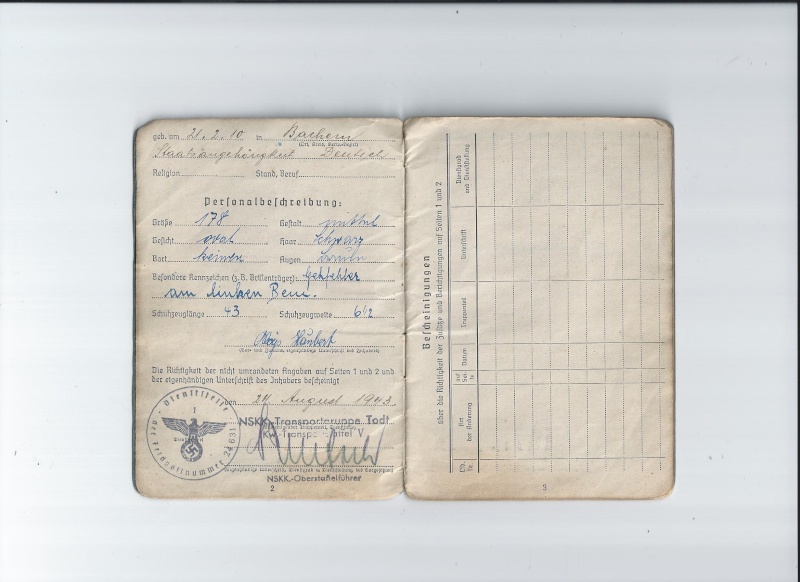 geb. am 21. 2. 10 in Bachem
(Ort, Kreis, Verw.-Bezirk)
Staatsangehörigkeit Deutsch
Religion Stand, Beruf
Personalbeschreibung:
Größe 178 Gestalt mittel
Gesicht oval Haar schwarz
Bart keinen Augen braun
Besondere Kennzeichen (z.B. Brillenträger): Gehfehler
am linken Bein.
Schuhzeuglänge 43 Schuhzeugweite 6 1/2
Haubert
(Vor- und Zuname, eigenhändige Unterschrift des Inhabers)
Die Richtigkeit der nicht umrandeten Angaben auf Seiten 1 und 2 und
der eigenhändigen Unterschrift des Inhabers bescheinigt
den 24. August 1943
Dienststelle
der Feldpostnummer
NSKK-Transportgruppe Todt
V
NSKK.-Obersta͏ffelführer
2
Bescheinigungen
über die Richtigkeit der Zusätze und Berichtigungen auf Seiten 1 und 2
Lfd. Nr.
Art der Änderung
auf Seite
Datum
Truppenteil
Unterschrift
Dienstgrad und Dienststellung
3